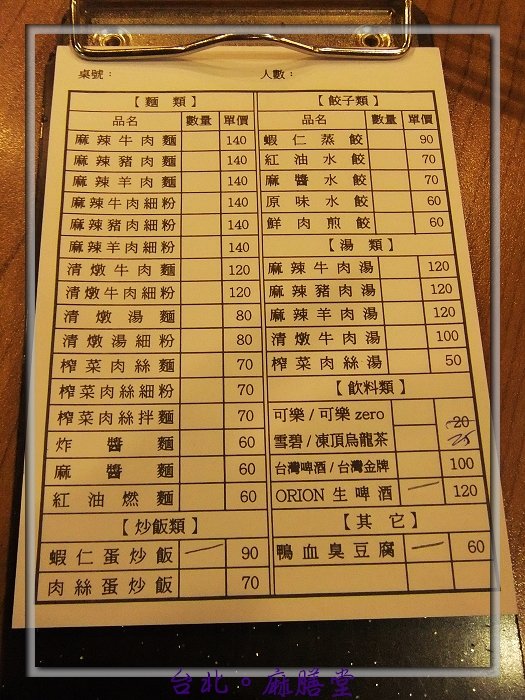 桌號： 人數：
【 麵 類 】
品名 數量 單價
麻辣牛肉麵 140
麻辣豬肉麵 140
麻辣羊肉麵 140
麻辣牛肉細粉 140
麻辣豬肉細粉 140
麻辣羊肉細粉 140
清燉牛肉麵 120
清燉牛肉細粉 120
清燉湯麵 80
清燉湯細粉 80
榨菜肉絲麵 70
榨菜肉絲細粉 70
榨菜肉絲拌麵 70
炸醬麵 60
麻醬麵 60
紅油燃麵 60
【 炒飯類 】
蝦仁蛋炒飯 90
肉絲蛋炒飯 70
【 餃子類 】
品名 數量 單價
蝦仁蒸餃 90
紅油水餃 70
麻醬水餃 70
原味水餃 60
鮮肉煎餃 60
【 湯 類 】
麻辣牛肉湯 120
麻辣豬肉湯 120
麻辣羊肉湯 120
清燉牛肉湯 100
榨菜肉絲湯 50
【 飲料類 】
可樂/可樂 zero 20
雪碧/凍頂烏龍茶 25
台灣啤酒/台灣金牌 100
ORION 生啤酒 120
【 其 它 】
鴨血臭豆腐 60
台北。麻膳堂